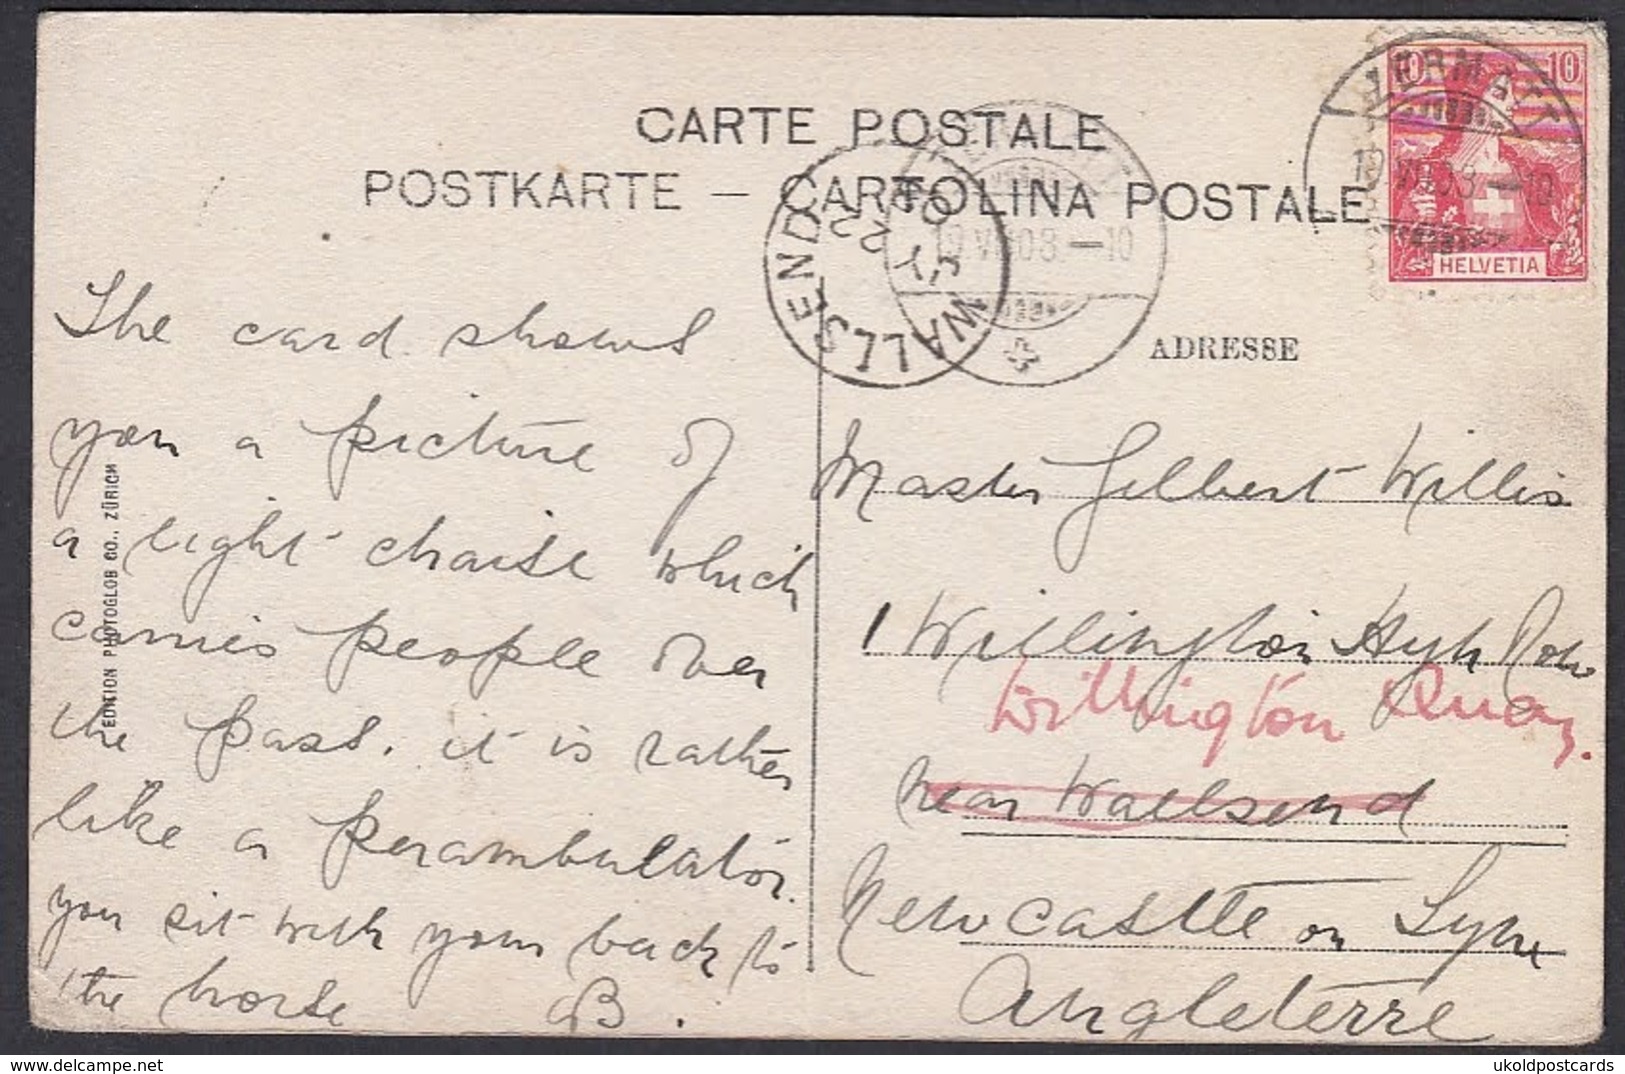 CARTE POSTALE
POSTKARTE — CARTOLINA POSTALE
ZERMATT
19 VII 08 — 10
10 10
HELVETIA
ZERMATT
19 VII 08 — 10
WALLSEND
JY 22
ADRESSE
EDITION PHOTOGLOB CO., ZÜRICH
The card shows
you a picture of
a light chaise which
carries people over
the pass. it is rather
like a perambulator.
you sit with your back to
the horse B.
Master Gilbert Willis
1 Willington High Row
Willington Quay.
Near Wallsend
Newcastle on Tyne
Angleterre
ukoldpostcards